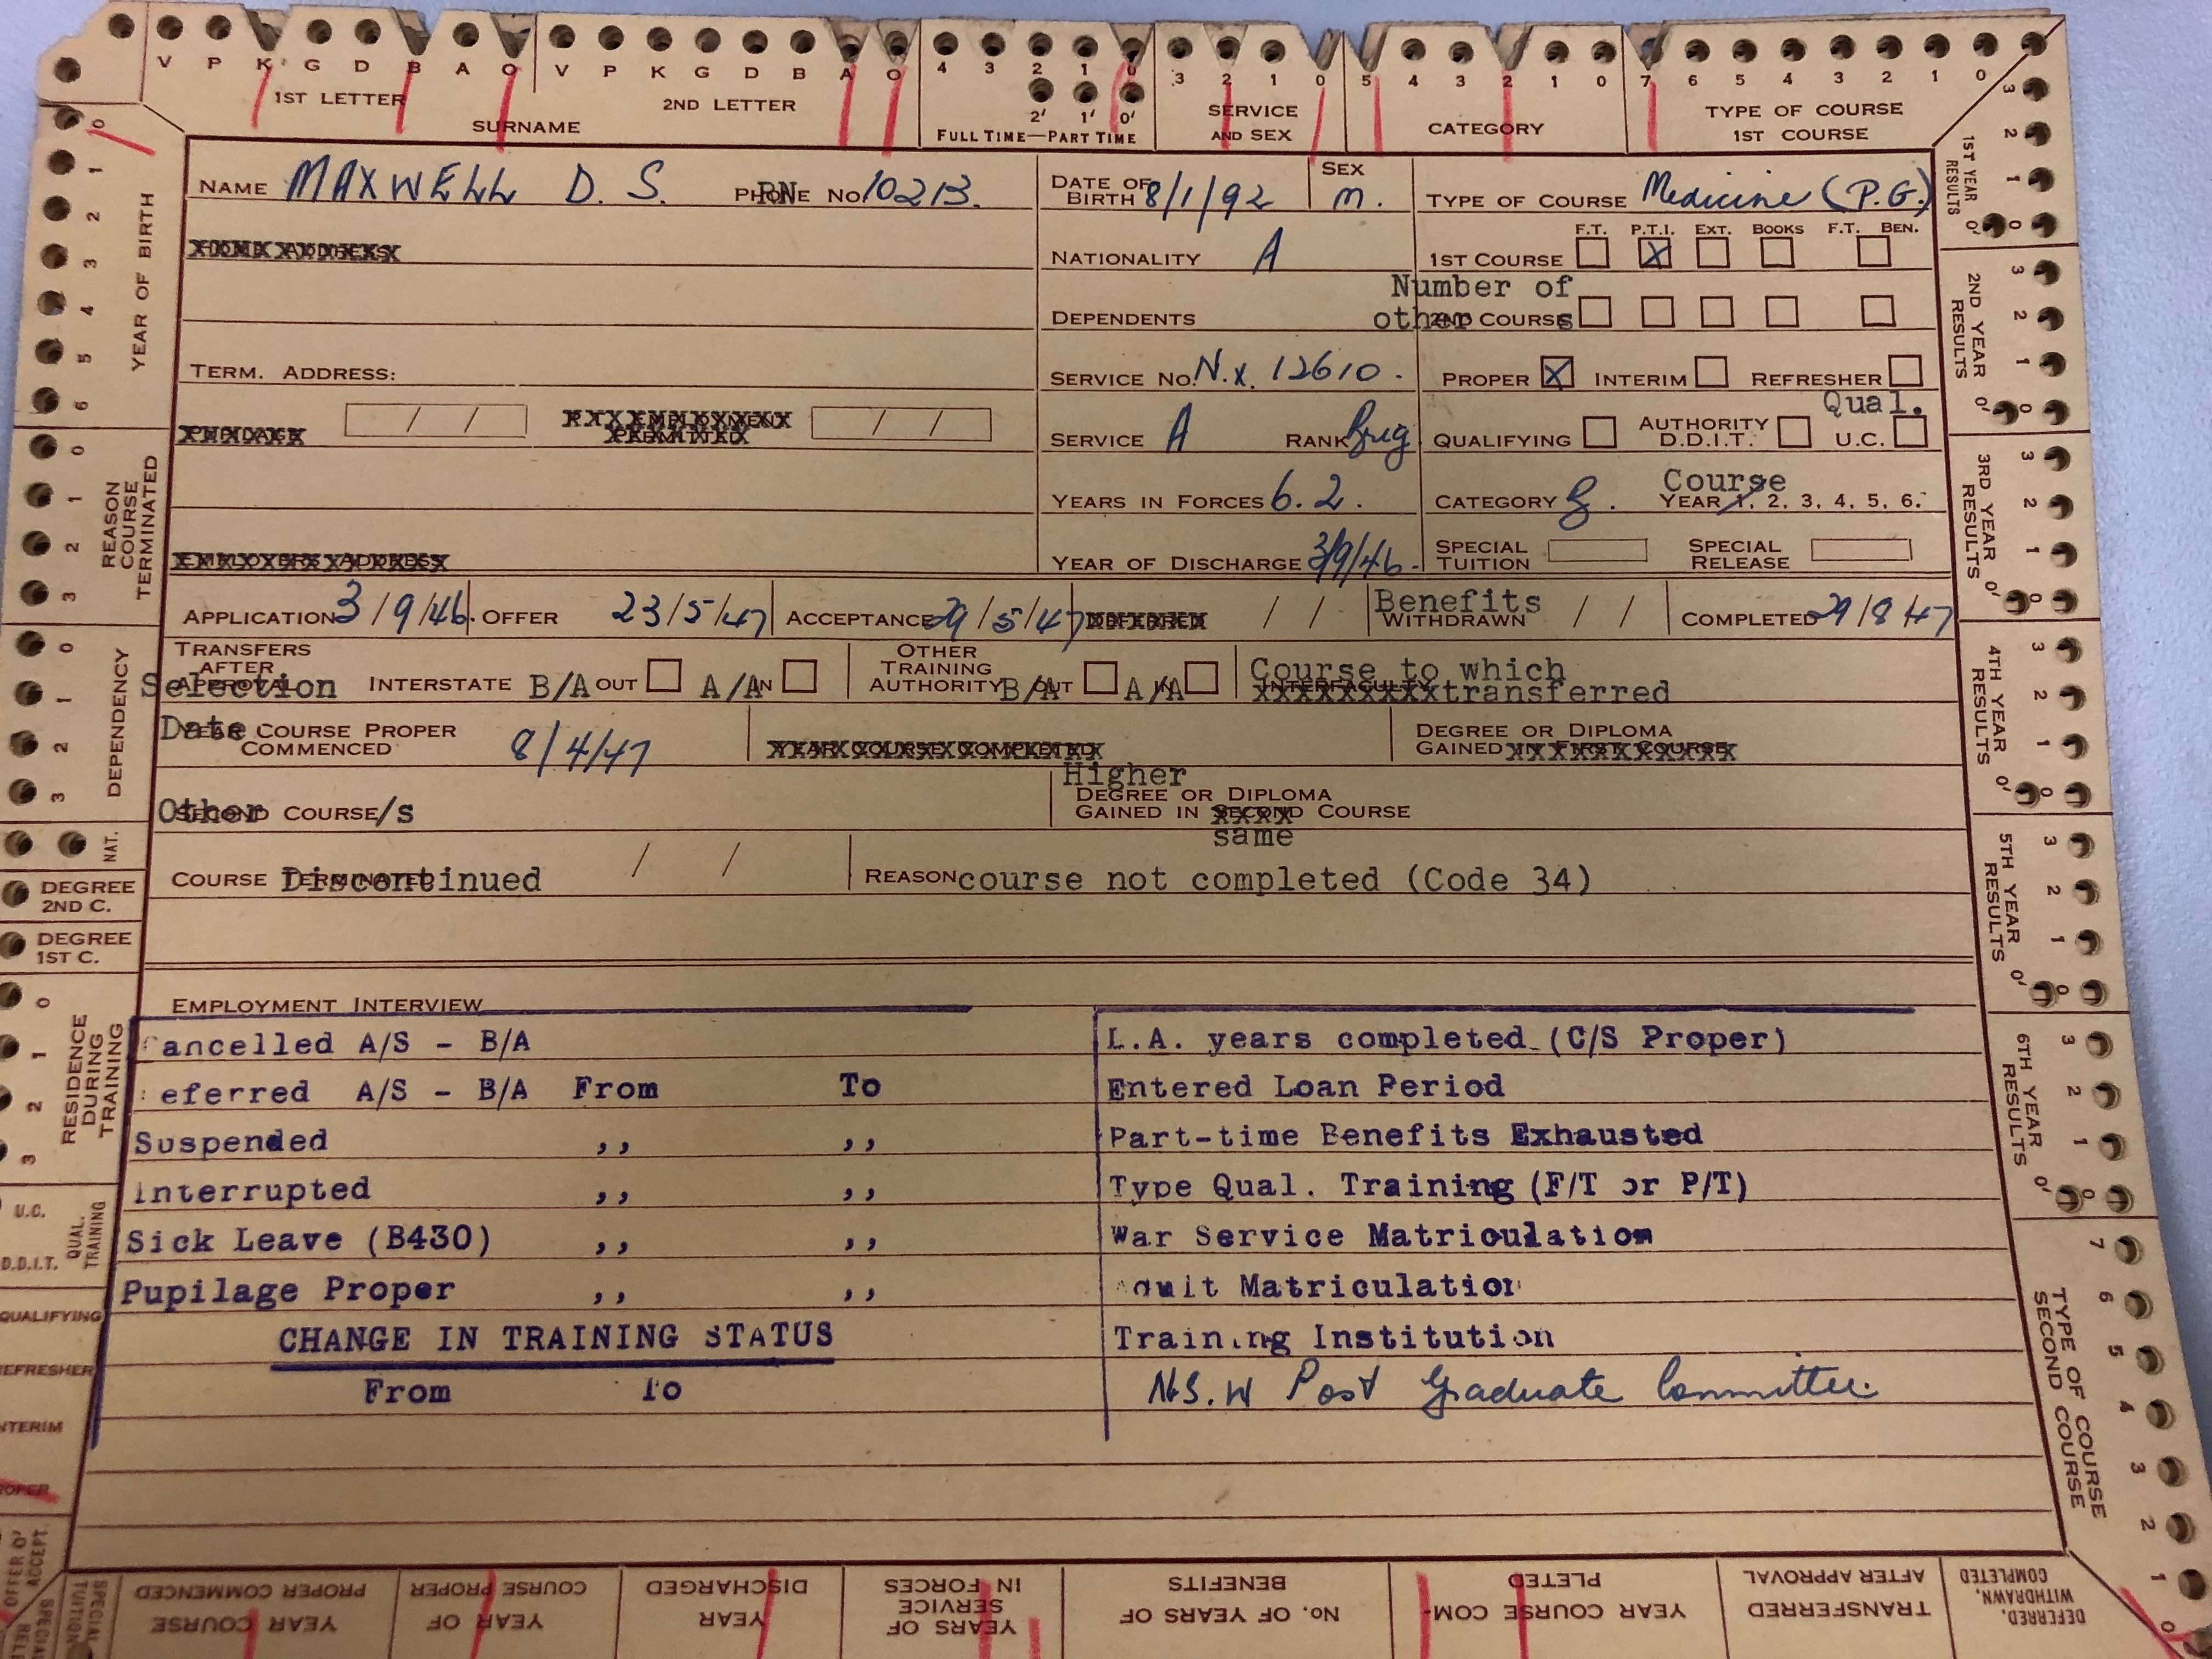 V P K G D B A O V P K G D B A O 4 3 2 1 0 3 2 1 0 5 4 3 2 1 0 7 6 5 4 3 2 1 0
2' 1' 0'
1ST LETTER 2ND LETTER
SURNAME
FULL TIME—PART TIME
SERVICE
AND SEX
CATEGORY
TYPE OF COURSE
1ST COURSE
NAME MAXWELL D. S. PHONE RN No 10213.
DATE OF
BIRTH 8/1/92
SEX
M.
TYPE OF COURSE Medicine (P.G.)
HOME ADDRESS
NATIONALITY A
F.T. P.T.I. EXT. BOOKS F.T. BEN.
1ST COURSE X
DEPENDENTS
Number of
other 2ND COURSE s
TERM. ADDRESS:
SERVICE No. N.X. 12610.
PROPER X INTERIM REFRESHER
/ / P.T. EMPLOYMENT
PERMITTED / /
SERVICE A RANK Brig
QUALIFYING AUTHORITY
D.D.I.T. Qual.
U.C.
YEARS IN FORCES 6.2.
CATEGORY g. Course
YEAR 1, 2, 3, 4, 5, 6.
EMPLOYERS ADDRESS
YEAR OF DISCHARGE 3/9/46.
SPECIAL
TUITION
SPECIAL
RELEASE
APPLICATION 3/9/46. OFFER 23/5/47 ACCEPTANCE 29/5/47 DEFERRED / / Benefits
WITHDRAWN / / COMPLETED 29/8/47
TRANSFERS
AFTER
APPROVAL Selection INTERSTATE B/A OUT A/A IN
OTHER
TRAINING
AUTHORITY B/A OUT A/A IN
Course to which
INTERFACULTY transferred
Date
YEAR COURSE PROPER
COMMENCED 8/4/47
YEAR COURSE COMPLETED
DEGREE OR DIPLOMA
GAINED IN FIRST COURSE
Other
SECOND COURSE/s
Higher
DEGREE OR DIPLOMA
GAINED IN SECOND COURSE
same
COURSE TERMINATED Discontinued / / REASON course not completed (Code 34)
EMPLOYMENT INTERVIEW
Cancelled A/S - B/A
eferred A/S - B/A From To
Suspended ,, ,,
Interrupted ,, ,,
Sick Leave (B430) ,, ,,
Pupilage Proper ,, ,,
CHANGE IN TRAINING STATUS
From To
L.A. years completed (C/S Proper)
Entered Loan Period
Part-time Benefits Exhausted
Type Qual. Training (F/T or P/T)
War Service Matriculation
Matriculation
Training Institution
N.S.W Post Graduate Committee
0 1 2 3 4 5 6
YEAR OF BIRTH
0 1 2 3
REASON
COURSE
TERMINATED
0 1 2 3
DEPENDENCY
NAT.
DEGREE
2ND C.
DEGREE
1ST C.
0 1 2 3
RESIDENCE
DURING
TRAINING
U.C.
D.D.I.T.
QUAL.
TRAINING
QUALIFYING
REFRESHER
NTERIM
ROPER
OFFER O'
ACCEPT.
3 2 1 0' 0
1ST YEAR
RESULTS
3 2 1 0' 0
2ND YEAR
RESULTS
3 2 1 0' 0
3RD YEAR
RESULTS
3 2 1 0' 0
4TH YEAR
RESULTS
3 2 1 0' 0
5TH YEAR
RESULTS
3 2 1 0' 0
6TH YEAR
RESULTS
7 6 5 4 3 2 1 0
TYPE OF COURSE
SECOND COURSE
DEFERRED,
WITHDRAWN,
COMPLETED
TRANSFERRED
AFTER APPROVAL
YEAR COURSE COM-
PLETED
No. OF YEARS OF
BENEFITS
YEARS OF
SERVICE
IN FORCES
YEAR
DISCHARGED
YEAR OF
COURSE PROPER
YEAR COURSE
PROPER COMMENCED
SPECIAL
TUITION
SPECIAL
REL